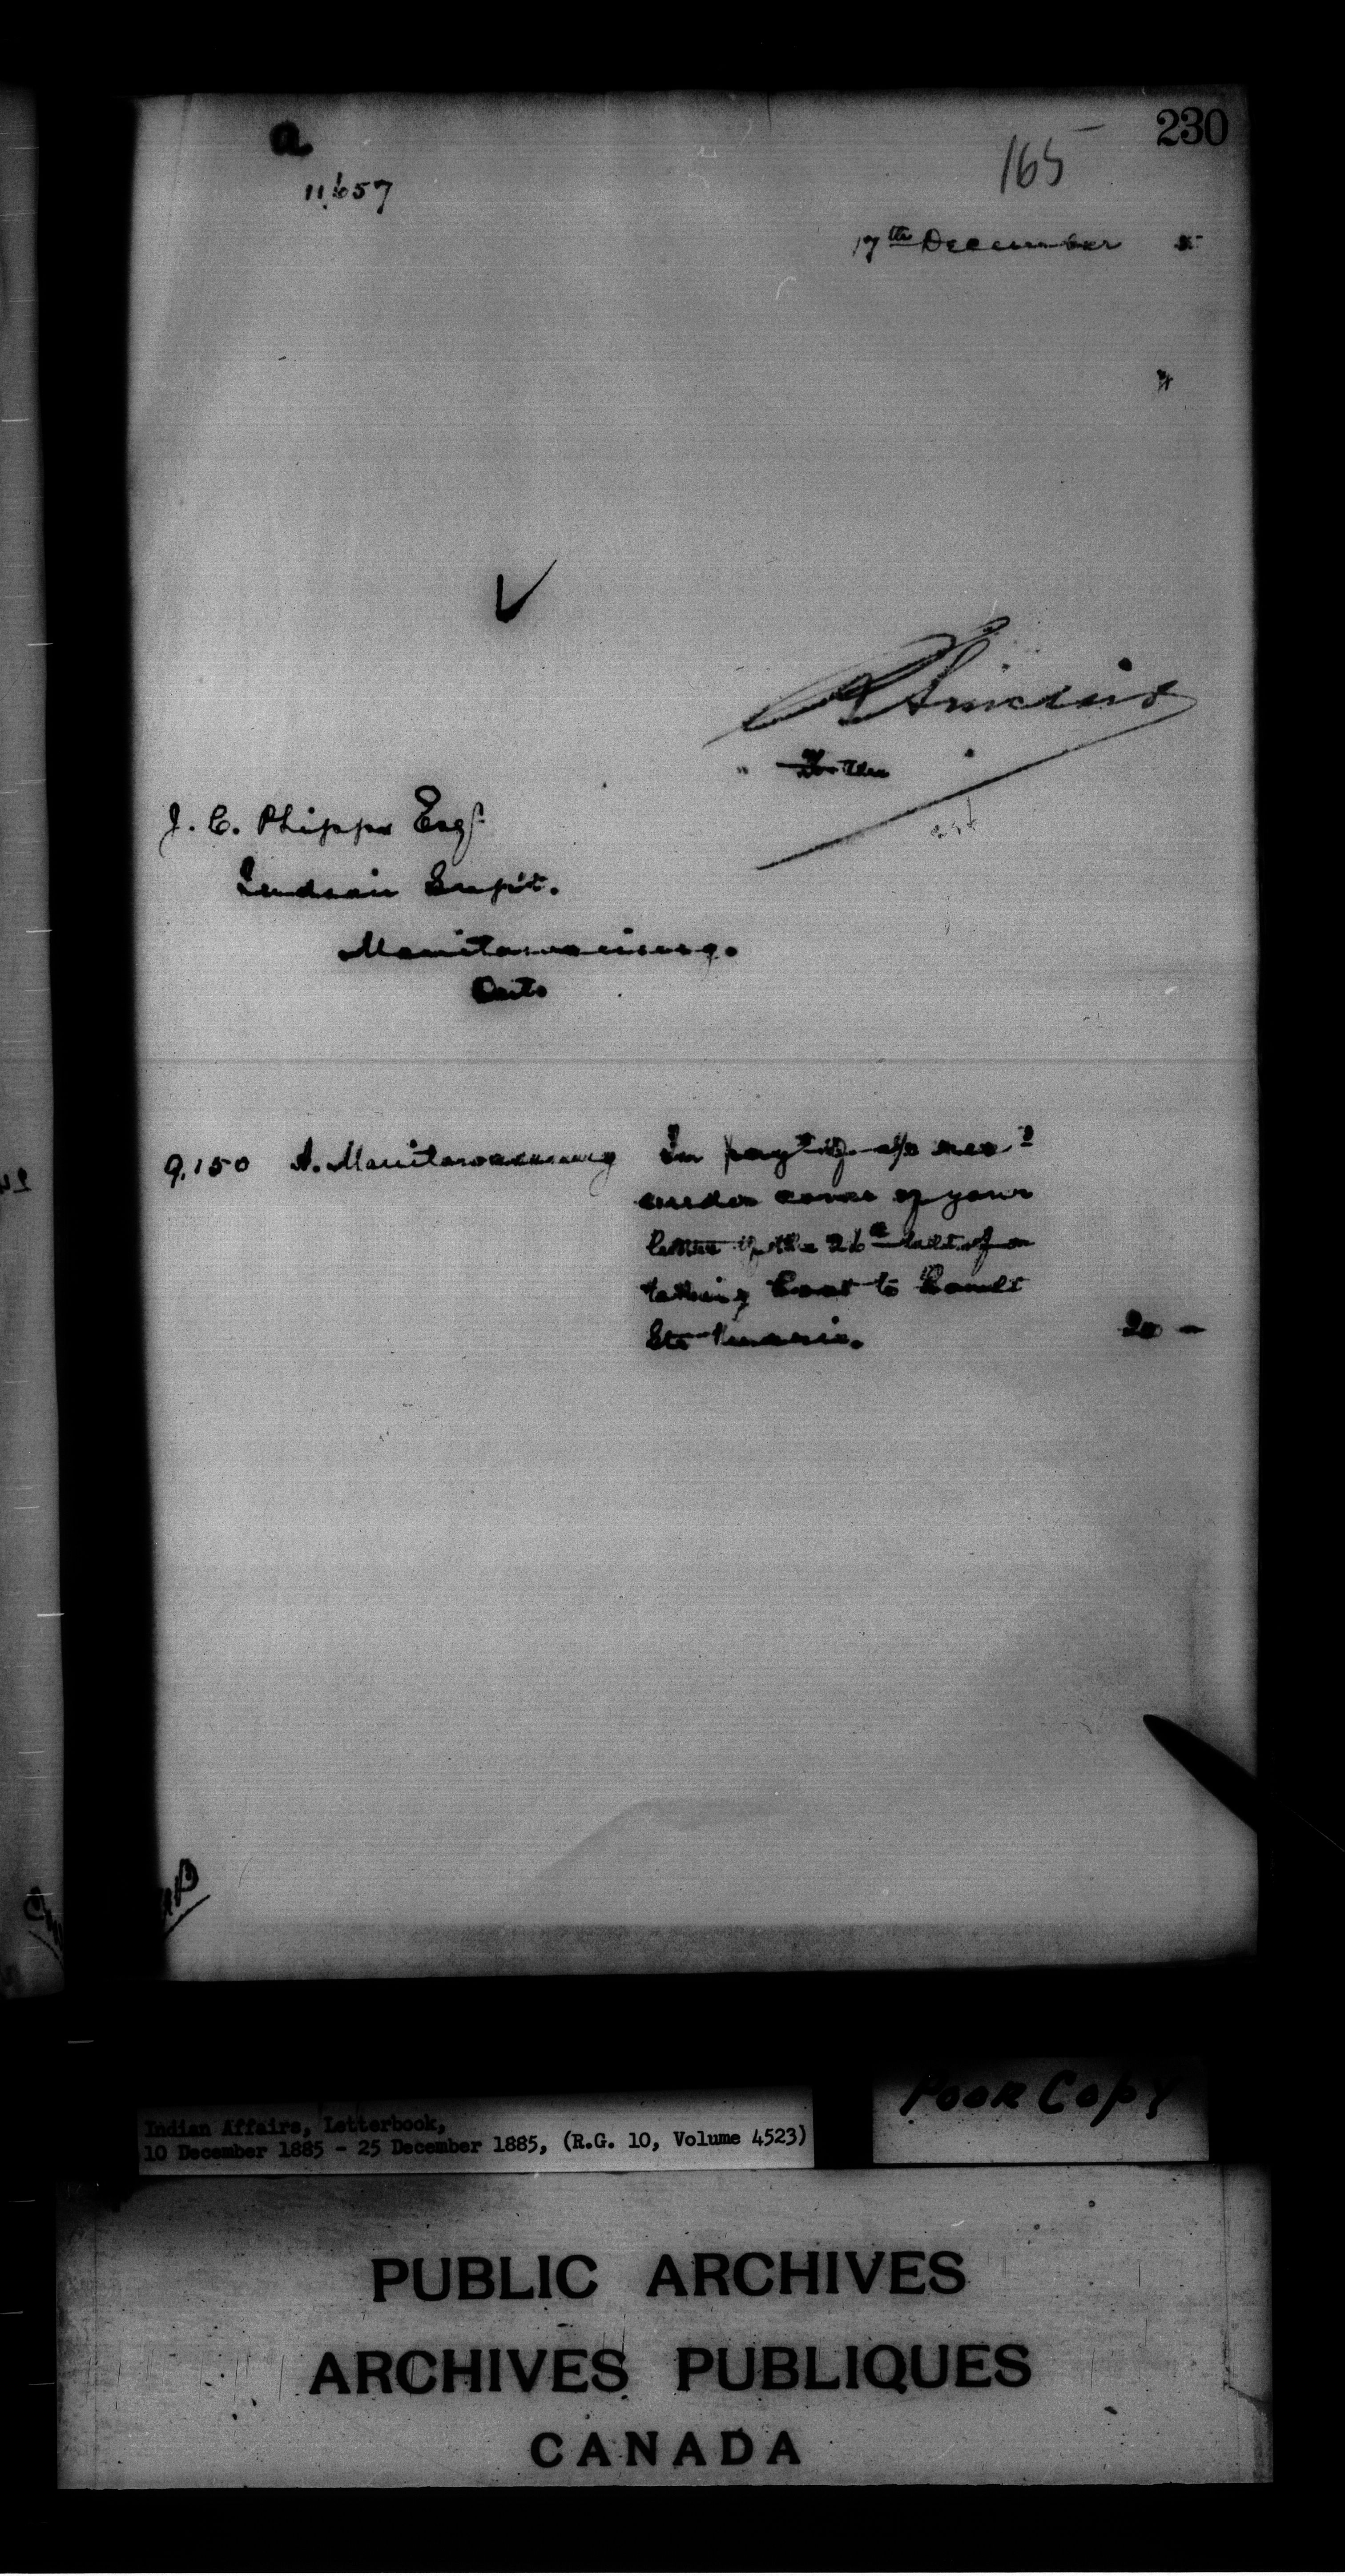 230
a
165
11,657
17th December 5
R Sinclair
for the
J. C. Phipps Esqr
Indian Supt.
Manitowaning.
Ont.
9,150 A. Manitowaning In payt of a/c recd
under cover of your
letter of the 26th ult. for
taking Boat to Sault
Ste Marie. 20 —
Poor Copy
Indian Affairs, Letterbook,
10 December 1885 - 25 December 1885, (R.G. 10, Volume 4523)
PUBLIC ARCHIVES
ARCHIVES PUBLIQUES
CANADA